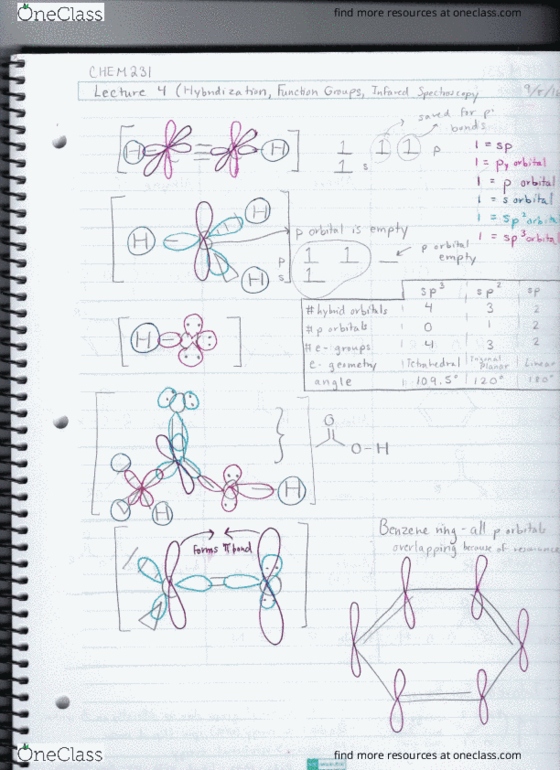 OneClass
find more resources at oneclass.com
CHEM 231
Lecture 4 (Hybridization, Function Groups, Infared Spectroscopy
saved for p
bonds
H H 1 1 1 p
1 s
1 = sp
1 = py orbital
1 = p orbital
1 = s orbital
1 = sp² orbital
1 = sp³ orbital
H H H
p orbital is empty
p 1 1 _
s 1
p orbital
empty
sp³ sp² sp
#hybrid orbitals 4 3 2
#p orbitals 0 1 2
#e- groups 4 3 2
e- geometry Tetrahedral Trigonal Planar Linear
angle 109.5° 120° 180°
H
O
O-H
H
H
forms π bond
Benzene ring - all p orbitals
overlapping because of resonance
OneClass
find more resources at oneclass.com